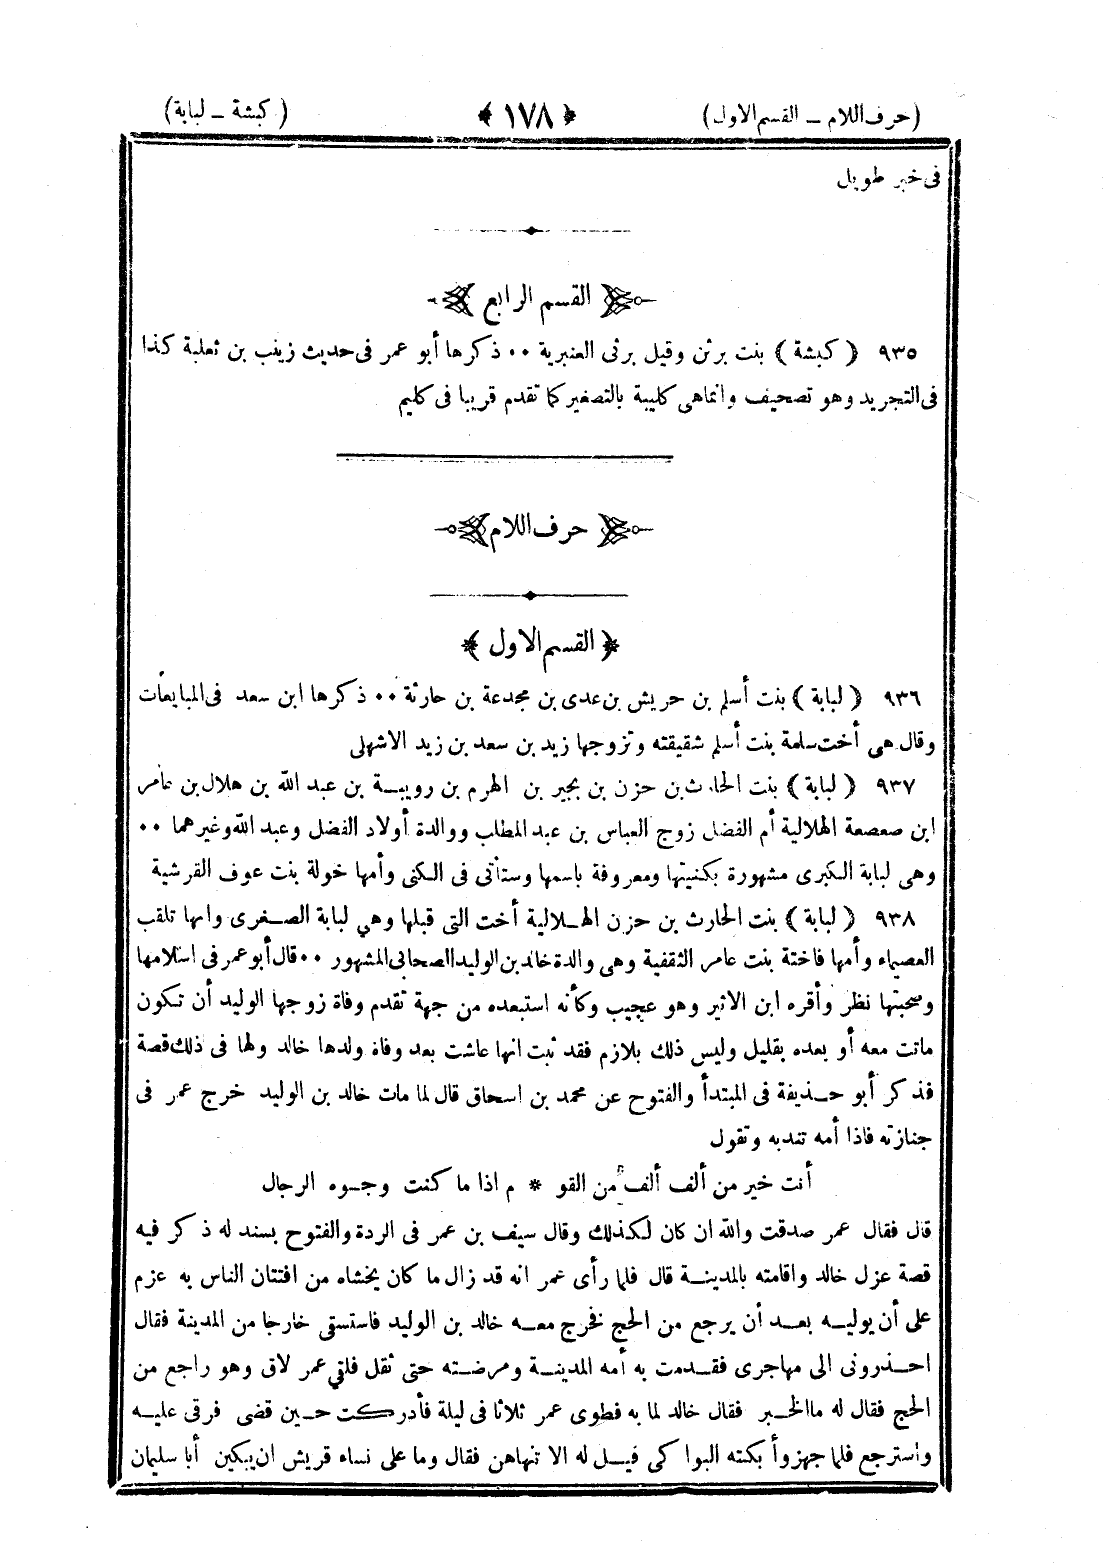 (حرف اللام ــ القسم الاول) ﴿ ١٧٨ ﴾ (كبشة ــ لبابة)
فى خبر طويل
القسم الرابع
٩٣٥ ﴿ كبشة ﴾ بنت برثن وقيل برثى العنبرية ٠٠ ذكرها أبو عمر فى حديث زينب بن ثعلبة كذا
فى التجريد وهو تصحيف وانماهى كليبة بالتصغير كما تقدم قريبا فى كليم
حرف اللام
﴿ القسم الاول ﴾
٩٣٦ ﴿ لبابة ﴾ بنت أسلم بن حريش بن عدى بن مجدعة بن حارثة ٠٠ ذكرها ابن سعد فى المبايعات
وقال هى أخت سلمة بنت أسلم شقيقته وتزوجها زيد بن سعد بن زيد الاشهلى
٩٣٧ ﴿ لبابة ﴾ بنت الحارث بن حزن بن بجير بن الهرم بن رويبة بن عبد الله بن هلال بن عامر
ابن صعصعة الهلالية أم الفضل زوج العباس بن عبد المطلب ووالدة أولاد الفضل وعبد الله وغيرهما ٠٠
وهى لبابة الكبرى مشهورة بكنيتها ومعروفة باسمها وستأتى فى الكنى وأمها خولة بنت عوف القرشية
٩٣٨ ﴿ لبابة ﴾ بنت الحارث بن حزن الهلالية أخت التى قبلها وهي لبابة الصغرى وانها تلقب
العصماء وأمها فاختة بنت عامر الثقفية وهى والدة خالد بن الوليد الصحابى المشهور ٠٠ قال أبو عمر فى اسلامها
وصحبتها نظر وأقره ابن الاثير وهو عجيب وكأنه استبعده من جهة تقدم وفاة زوجها الوليد أن تكون
ماتت معه أو بعده بقليل وليس ذلك بلازم فقد ثبت انها عاشت بعد وفاة ولدها خالد ولها فى ذلك قصة
فذكر أبو حذيفة فى المبتدأ والفتوح عن محمد بن اسحاق قال لما مات خالد بن الوليد خرج عمر فى
جنازته فاذا أمه تندبه وتقول
أنت خير من ألف ألف من القو * م اذا ما كنت وجوه الرجال
قال فقال عمر صدقت والله ان كان لكذلك وقال سيف بن عمر فى الردة والفتوح بسند له ذكر فيه
قصة عزل خالد واقامته بالمدينة قال فلما رأى عمر انه قد زال ما كان يخشاه من افتتان الناس به عزم
على أن يوليه بعد أن يرجع من الحج فخرج معه خالد بن الوليد فاستسقى خارجا من المدينة فقال
احذرونى الى مهاجرى فقدمت به أمه المدينة ومرضته حتى ثقل فلقي عمر لاق وهو راجع من
الحج فقال له ما الخبر فقال خالد لما به فطوى عمر ثلاثا فى ليلة فأدركت حين قضى فرقى عليه
واسترجع فلما جهزوأ بكته البوا كى فيل له الا تنهاهن فقال وما على نساء قريش ان يبكين أبا سليمان